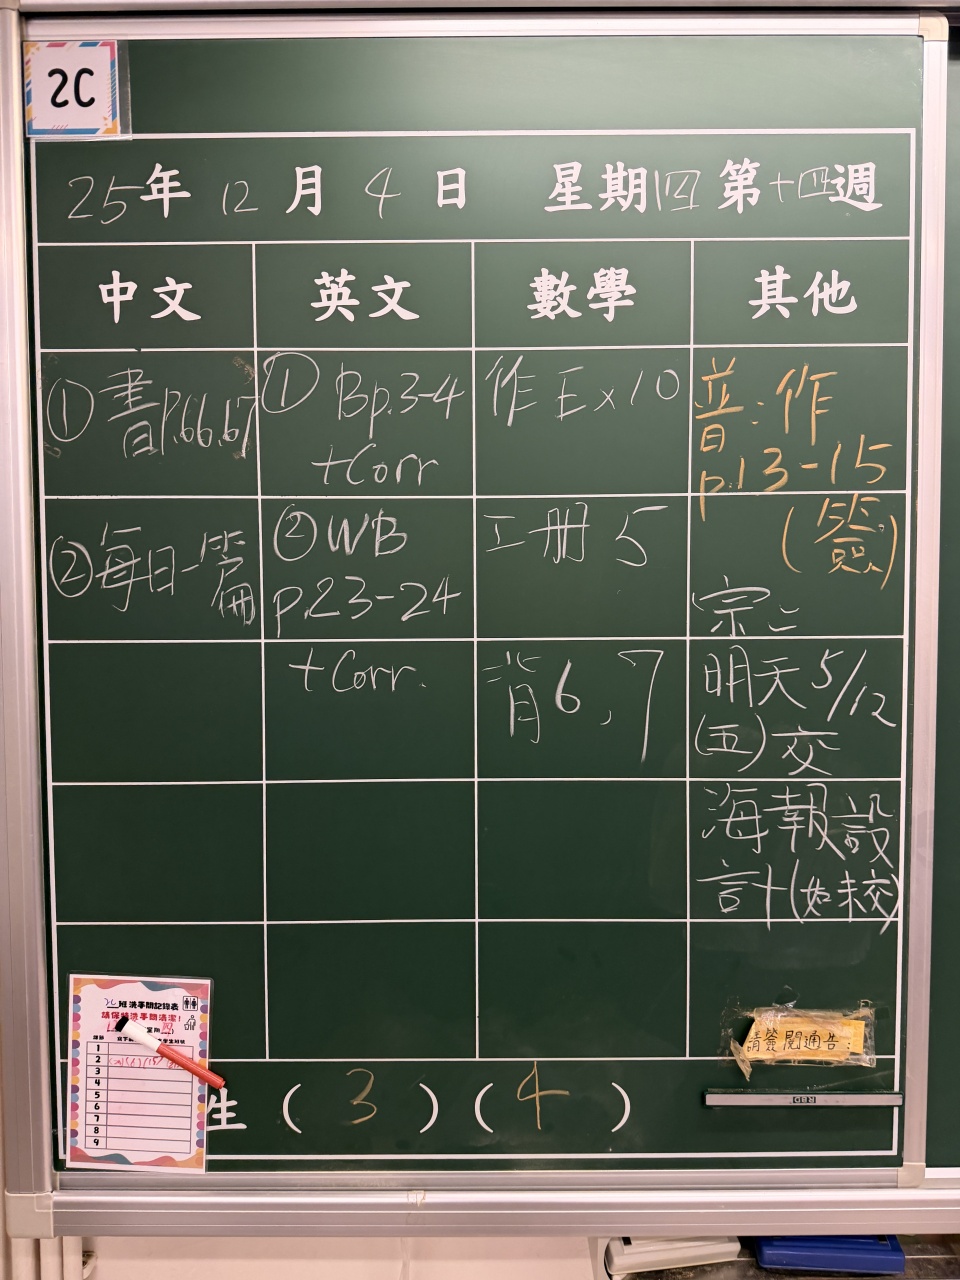 2C
25年 12月 4日 星期四 第十四週
中文 英文 數學 其他
① 書p.66.67
② 每日一篇
① Bp.3-4
+Corr
② WB
p.23-24
+Corr.
作 Ex10
工册 5
背 6、7
普:作
p.13-15
(簽)
宗:
明天5/12
(五)交
海報設
計(如未交)
2C班洗手間記錄表
請保持洗手間清潔!
1
2
3
4
5
6
7
8
9
請簽閱通告:
RED
生 ( 3 ) ( 4 )